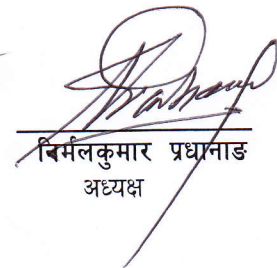 निर्मलकुमार प्रधानाङ
अध्यक्ष